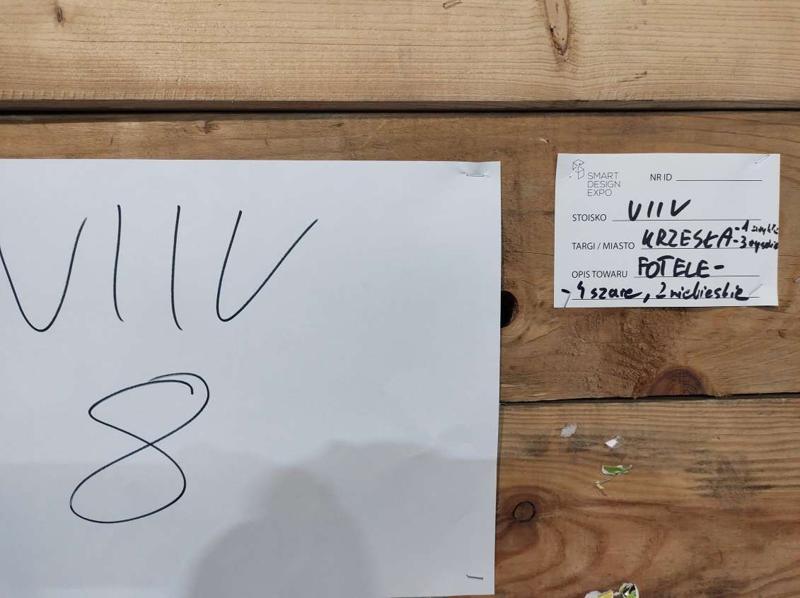 VIIV
8
SMART
DESIGN
EXPO
NR ID
STOISKO VIIV
TARGI / MIASTO KRZESŁA -1 zwykłe
-3 wysokie
OPIS TOWARU FOTELE -
- 4 szare, 2 niebieskie